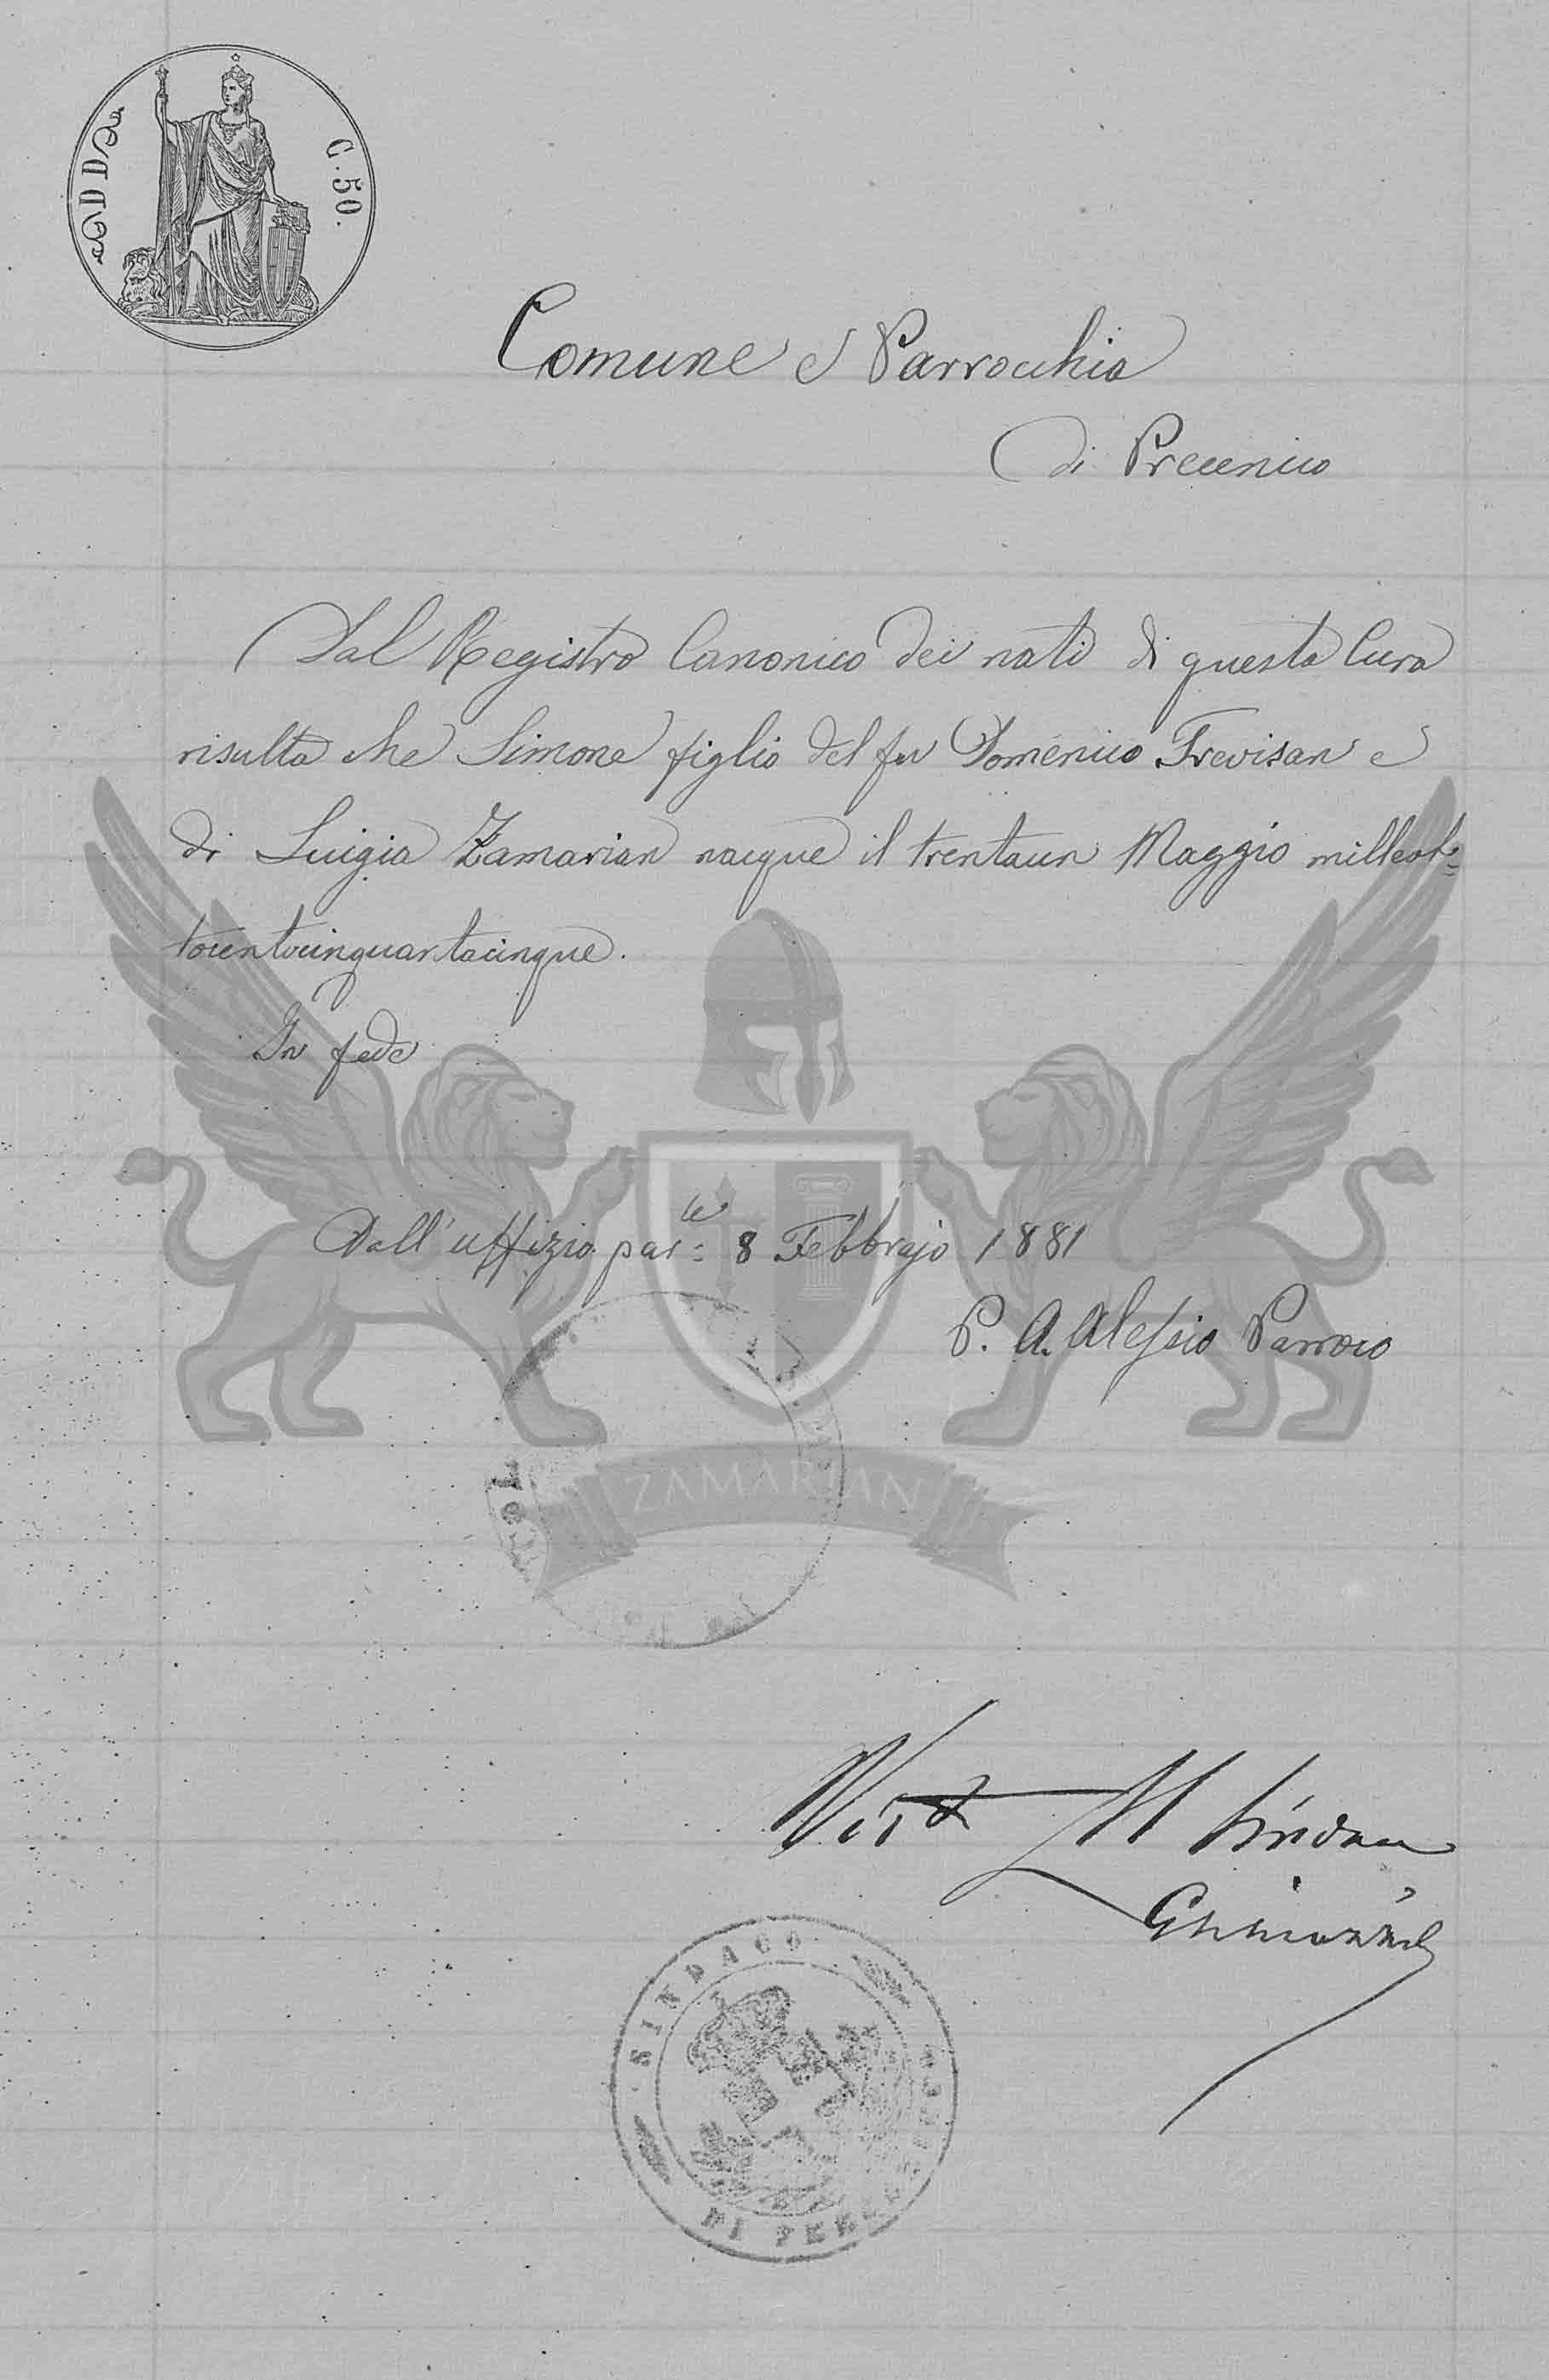 DD
C. 50.
Comune e Parrocchia
di Precenico
Dal Registro Canonico dei nati di questa Cura
risulta che Simone figlio del fu Domenico Trevisan e
di Luigia Zamarian nacque il trentaun Maggio milleot=
tocentocinquantacinque.
In fede
Dall'uffizio par.le 8 Febbrajo 1881
P. A. Alessio Parroco
ZAMARIAN
Visto Il Sindaco
SINDACO
DI